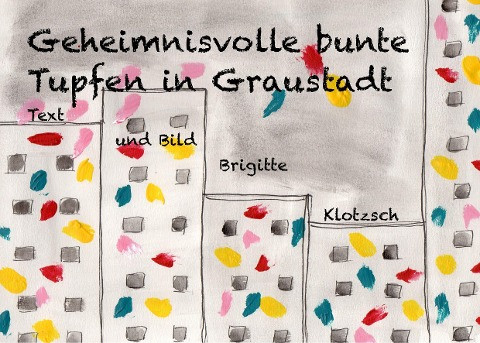 Geheimnisvolle bunte
Tupfen in Graustadt
Text
und Bild
Brigitte
Klotzsch